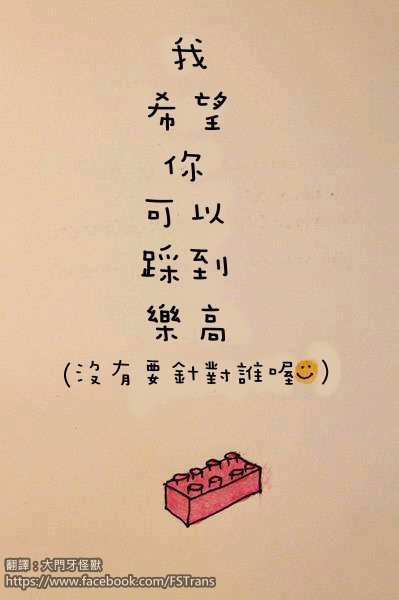 我
希望
你
可以
踩到
樂高
(沒有要針對誰喔)
翻譯：大門牙怪獸
https://www.facebook.com/FSTrans